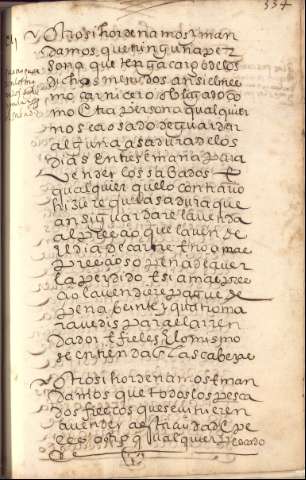 334
Otrosi hordenamos t man
damos que ninguna per
sona que tenga cargo de los
dichos menudos ansi el mes
mo carnicero obligado co
mo otra persona qualquier
no sea osado de guardar
alguna asadura de los
dias entre semana para
vender los sabados t
qualquier que lo contrario
hiziere que la sadura que
ansi guardare la venda
al preçio que la ven de
re dia de carne t no a mas
preçio so pena de aver
la perdido t si a mas pre
çio la vendiere pague de
pena beinte y quatro ma
ravedis para el arren
dador t fieles y lo mismo
se entienda en las cabeças
Otrosi hordenamos t man
damos que todos los pesca
dos frescos que se vinieren
a vender a esta ciudad
qualquier